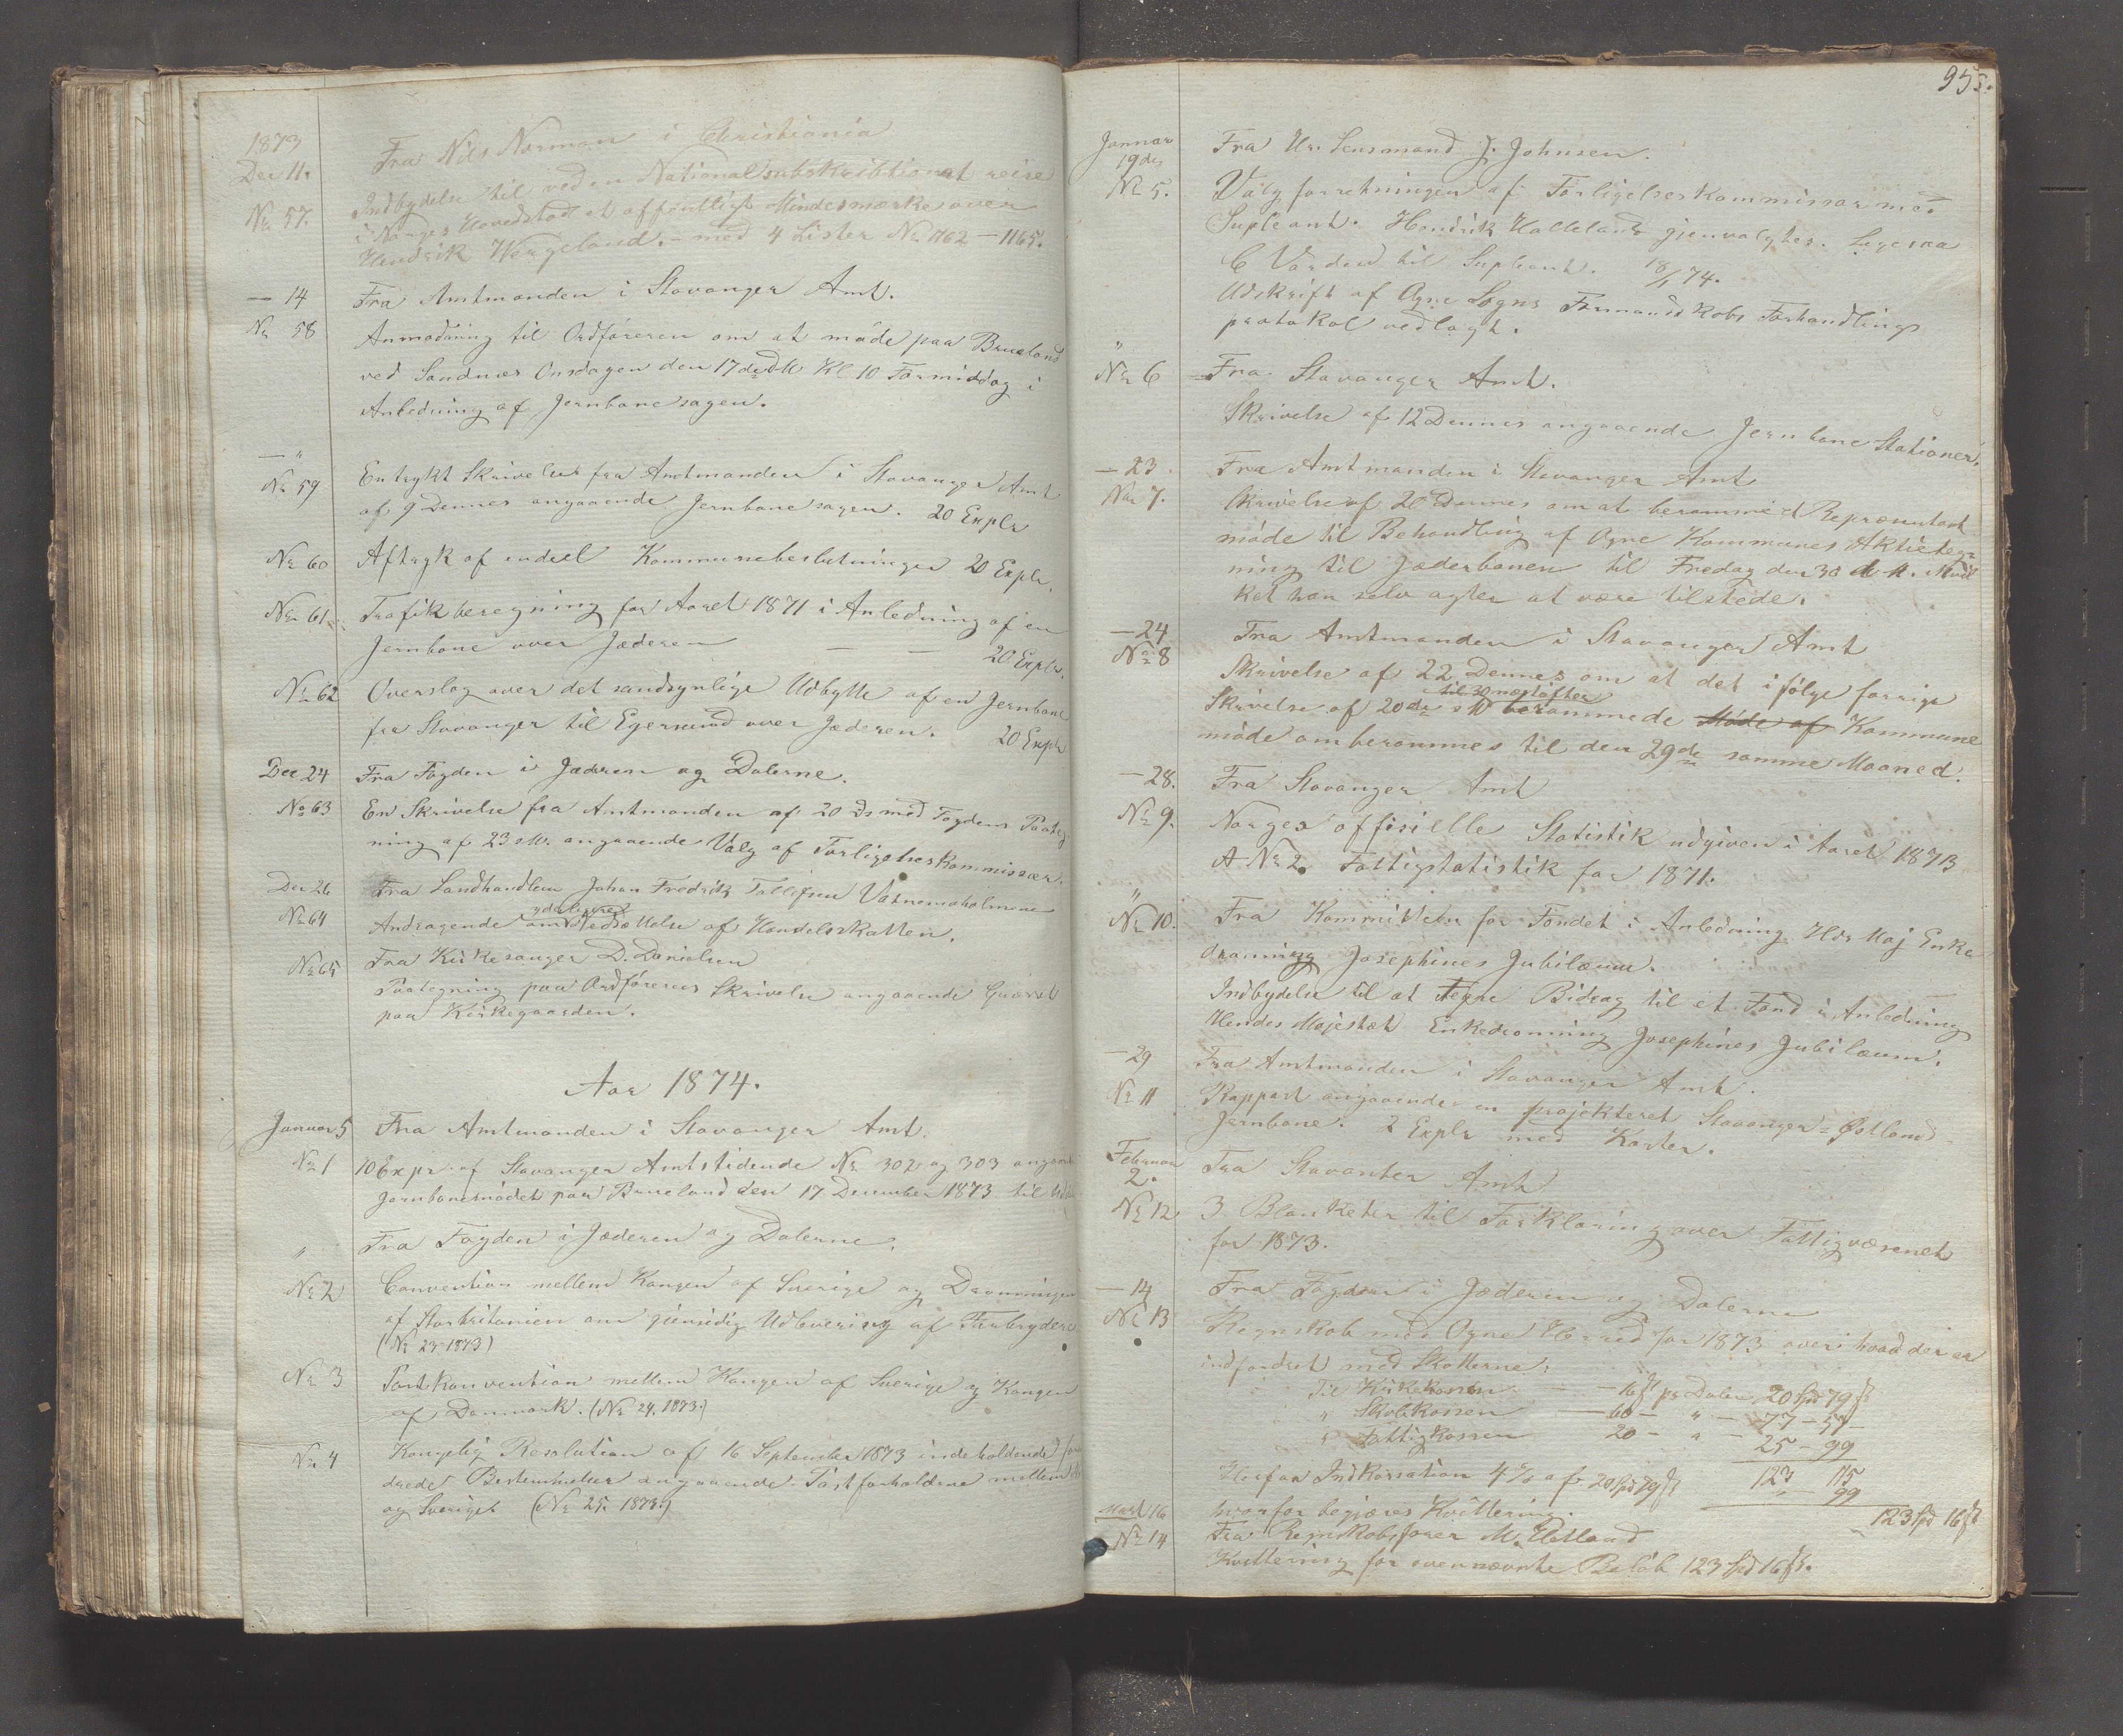 1873
Dec 11. Fra Nils Norman i Christiania
Indbydelse til ved en Nationalsubskribtion at reise
No 57. i Norges Hovedstad et offentligt Mindesmærke over
Hendrik Wergeland. – med 4 Lister No 1162 – 1165.
— 14 Fra Amtmanden i Stavanger Amt.
No 58 Anmodning til Ordføreren om at møde paa Brueland
ved Sandnæs Onsdagen den 17de Kl. 10 Formiddag i
Anledning af Jernbanesagen.
— "
No 59 En trykt Skrivelse fra Amtmanden i Stavanger Amt
af 9 Dennes angaaende Jernbanesagen. 20 Explr
No 60 Aftryk af endeel Kommunebeslutninger 20 Explr.
No 61 Trafikberegning for Aaret 1871 i Anledning af en
Jernbane over Jæderen — — 20 Explr.
No 62 Overslag over det sandsynlige Udbytte af en Jernbane
fra Stavanger til Egersund over Jæderen. 20 Explr
Dec 24 Fra Fogden i Jæderen og Dalerne.
No 63 En Skrivelse fra Amtmanden af 20 ds med Fogdens Paateg
ning af 23 angaaende Valg af Forligelseskommissær.
Dec 26 Fra Landhandler Johan Fredrik Tollefsen
No 64 Andragende om yderligere Nedsættelse af Handelsskatten.
No 65 Fra Kirkesanger D. Danielsen
Paategning paa Ordførerens Skrivelse angaaende
paa Kirkegaarden.
Aar 1874.
Januar 5 Fra Amtmanden i Stavanger Amt.
No 1 10 Expr. af Stavanger Amtstidende No 302 og 303 angaa
Jernbanemødet paa Brueland den 17 December 1873 til
" Fra Fogden i Jæderen og Dalerne.
No 2 Convention mellem Kongen af Sverige og Dronningen
af Storbritanien om gjensidig Udlevering af Forbrydere
(No 23 1873)
No 3 Postkonvention mellem Kongen af Sverige og Kongen
af Danmark. (No 24. 1873.)
No 4 Kongelig Resolution af 16 September 1873 indeholdende
drede Bestemmelser angaaende Postforholdene mellem
og Sverige (No 25. 1873.)
955.
Januar
19de Fra Hr. Lensmand J. Johnsen.
No 5. Valgforretningen af Forligelseskommissær med
Supleant. Hendrik Halleland gjenvalgtes. Ligesaa
C Varden til Supleant. 18/1 74.
Udskrift af Ogne Sogns Formandskabs Forhandlings
protokol vedlagt.
"
No 6 Fra Stavanger Amt.
Skrivelse af 12 Dennes angaaende Jernbane Stationer.
— 23. Fra Amtmanden i Stavanger Amt
No 7. Skrivelse af 20 Dennes om at beramme et Repræsentant
møde til Behandling af Ogne Kommunes Aktieteg=
ning til Jæderbanen til Fredag den 30 d. M. Hvil
ket han selv agter at være tilstede.
— 24 Fra Amtmanden i Stavanger Amt
No 8 Skrivelse af 22 Dennes om at det ifølge forrige
til 30 næstefter
Skrivelse af 20de berammede Møde af Kommune
møde omberammes til den 29de samme Maaned.
— 28. Fra Stavanger Amt
No 9. Norges offisielle Statistik udgiven i Aaret 1873
A No 2. Fattigstatistik for 1871.
"
No 10. Fra Kommitteen for Fondet i Anledning Hds Maj Enke
dronning Josephines Jubilæum.
Indbydelse til at tegne Bidrag til et Fond i Anledning
Hendes Majestæt Enkedronning Josephines Jubilæum.
— 29 Fra Amtmanden i Stavanger Amt.
No 11 Rapport angaaende en projekteret Stavanger=Østland=
Jernbane. 2 Explr med Karter.
Februar
2. Fra Stavanter Amt
No 12 3 Blanketer til Forklaring over Fattigvæsenet
for 1873.
— 14 Fra Fogden i Jæderen og Dalerne
No 13 Regnskab med Ogne Herred for 1873 over hvad der er
indfordret med Skatterne:
Til Kirkekassen — 16 ß pr Daler 20 Spd 79 ß
" Skolekassen — 60 — " — 77 – 57 –
" Fattigkassen 20 — " — 25 – 99
Herfor Indkassation 4 % af 20 Spd 79 ß 123 115
" 99
123 Spd 16 ß
hvorfor begjæres Kvittering.
Mart 16 Fra Regnskabsfører M. Hetland
No 14 Kvittering for ovennævnte Beløb 123 Spd 16 ß.